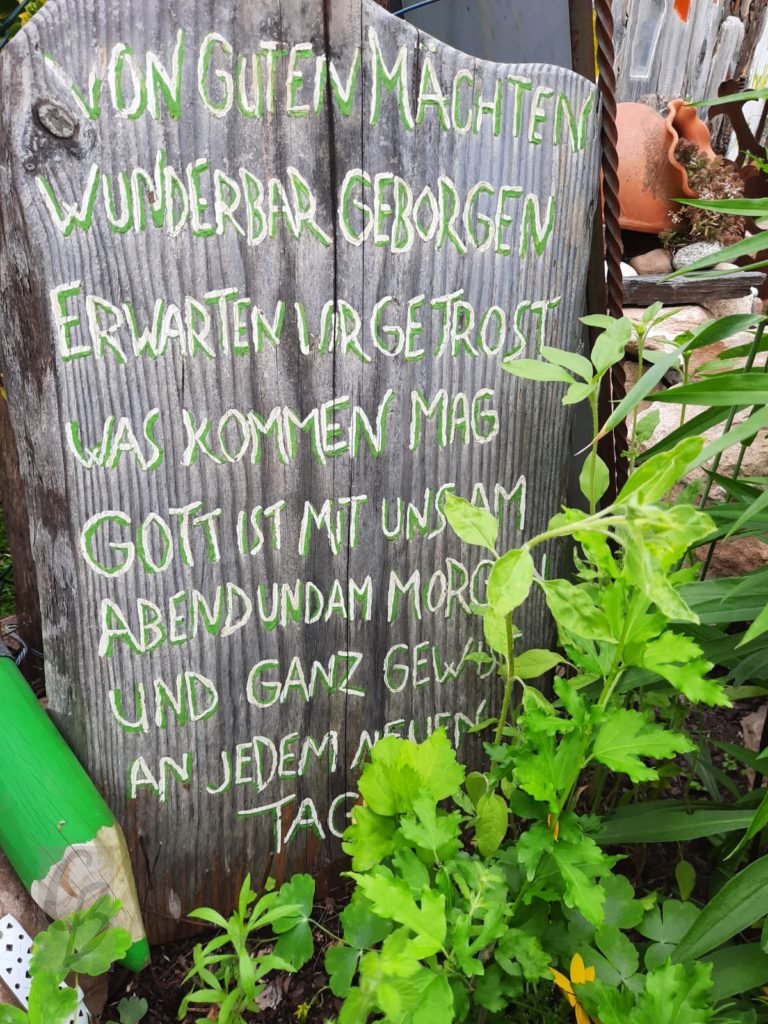 VON GUTEN MÄCHTEN
WUNDERBAR GEBORGEN
ERWARTEN WIR GETROST
WAS KOMMEN MAG
GOTT IST MIT UNS AM
ABEND UND AM
UND GANZ
AN JEDEM NEUEN
TAG